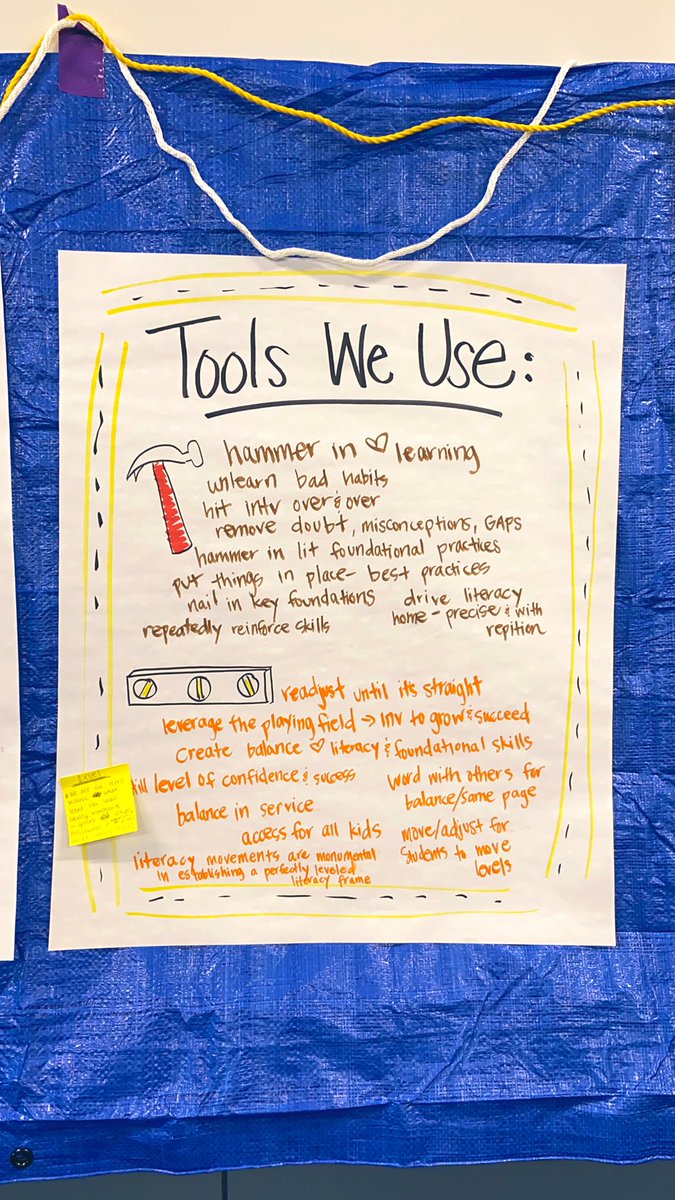 Tools We Use:
hammer in learning
unlearn bad habits
hit intv over & over
remove doubt, misconceptions, GAPS
hammer in lit foundational practices
put things in place - best practices
nail in key foundations
repeatedly reinforce skills
drive literacy
home - precise & with
repition
readjust until its straight
leverage the playing field → Inv to grow & succeed
create balance ♡ literacy & foundational skills
level of confidence & success
balance in service
access for all kids
literacy movements are monumental
in establishing a perfectly leveled
literacy frame
word with others for
balance/same page
move/adjust for
students to move
levels
Level